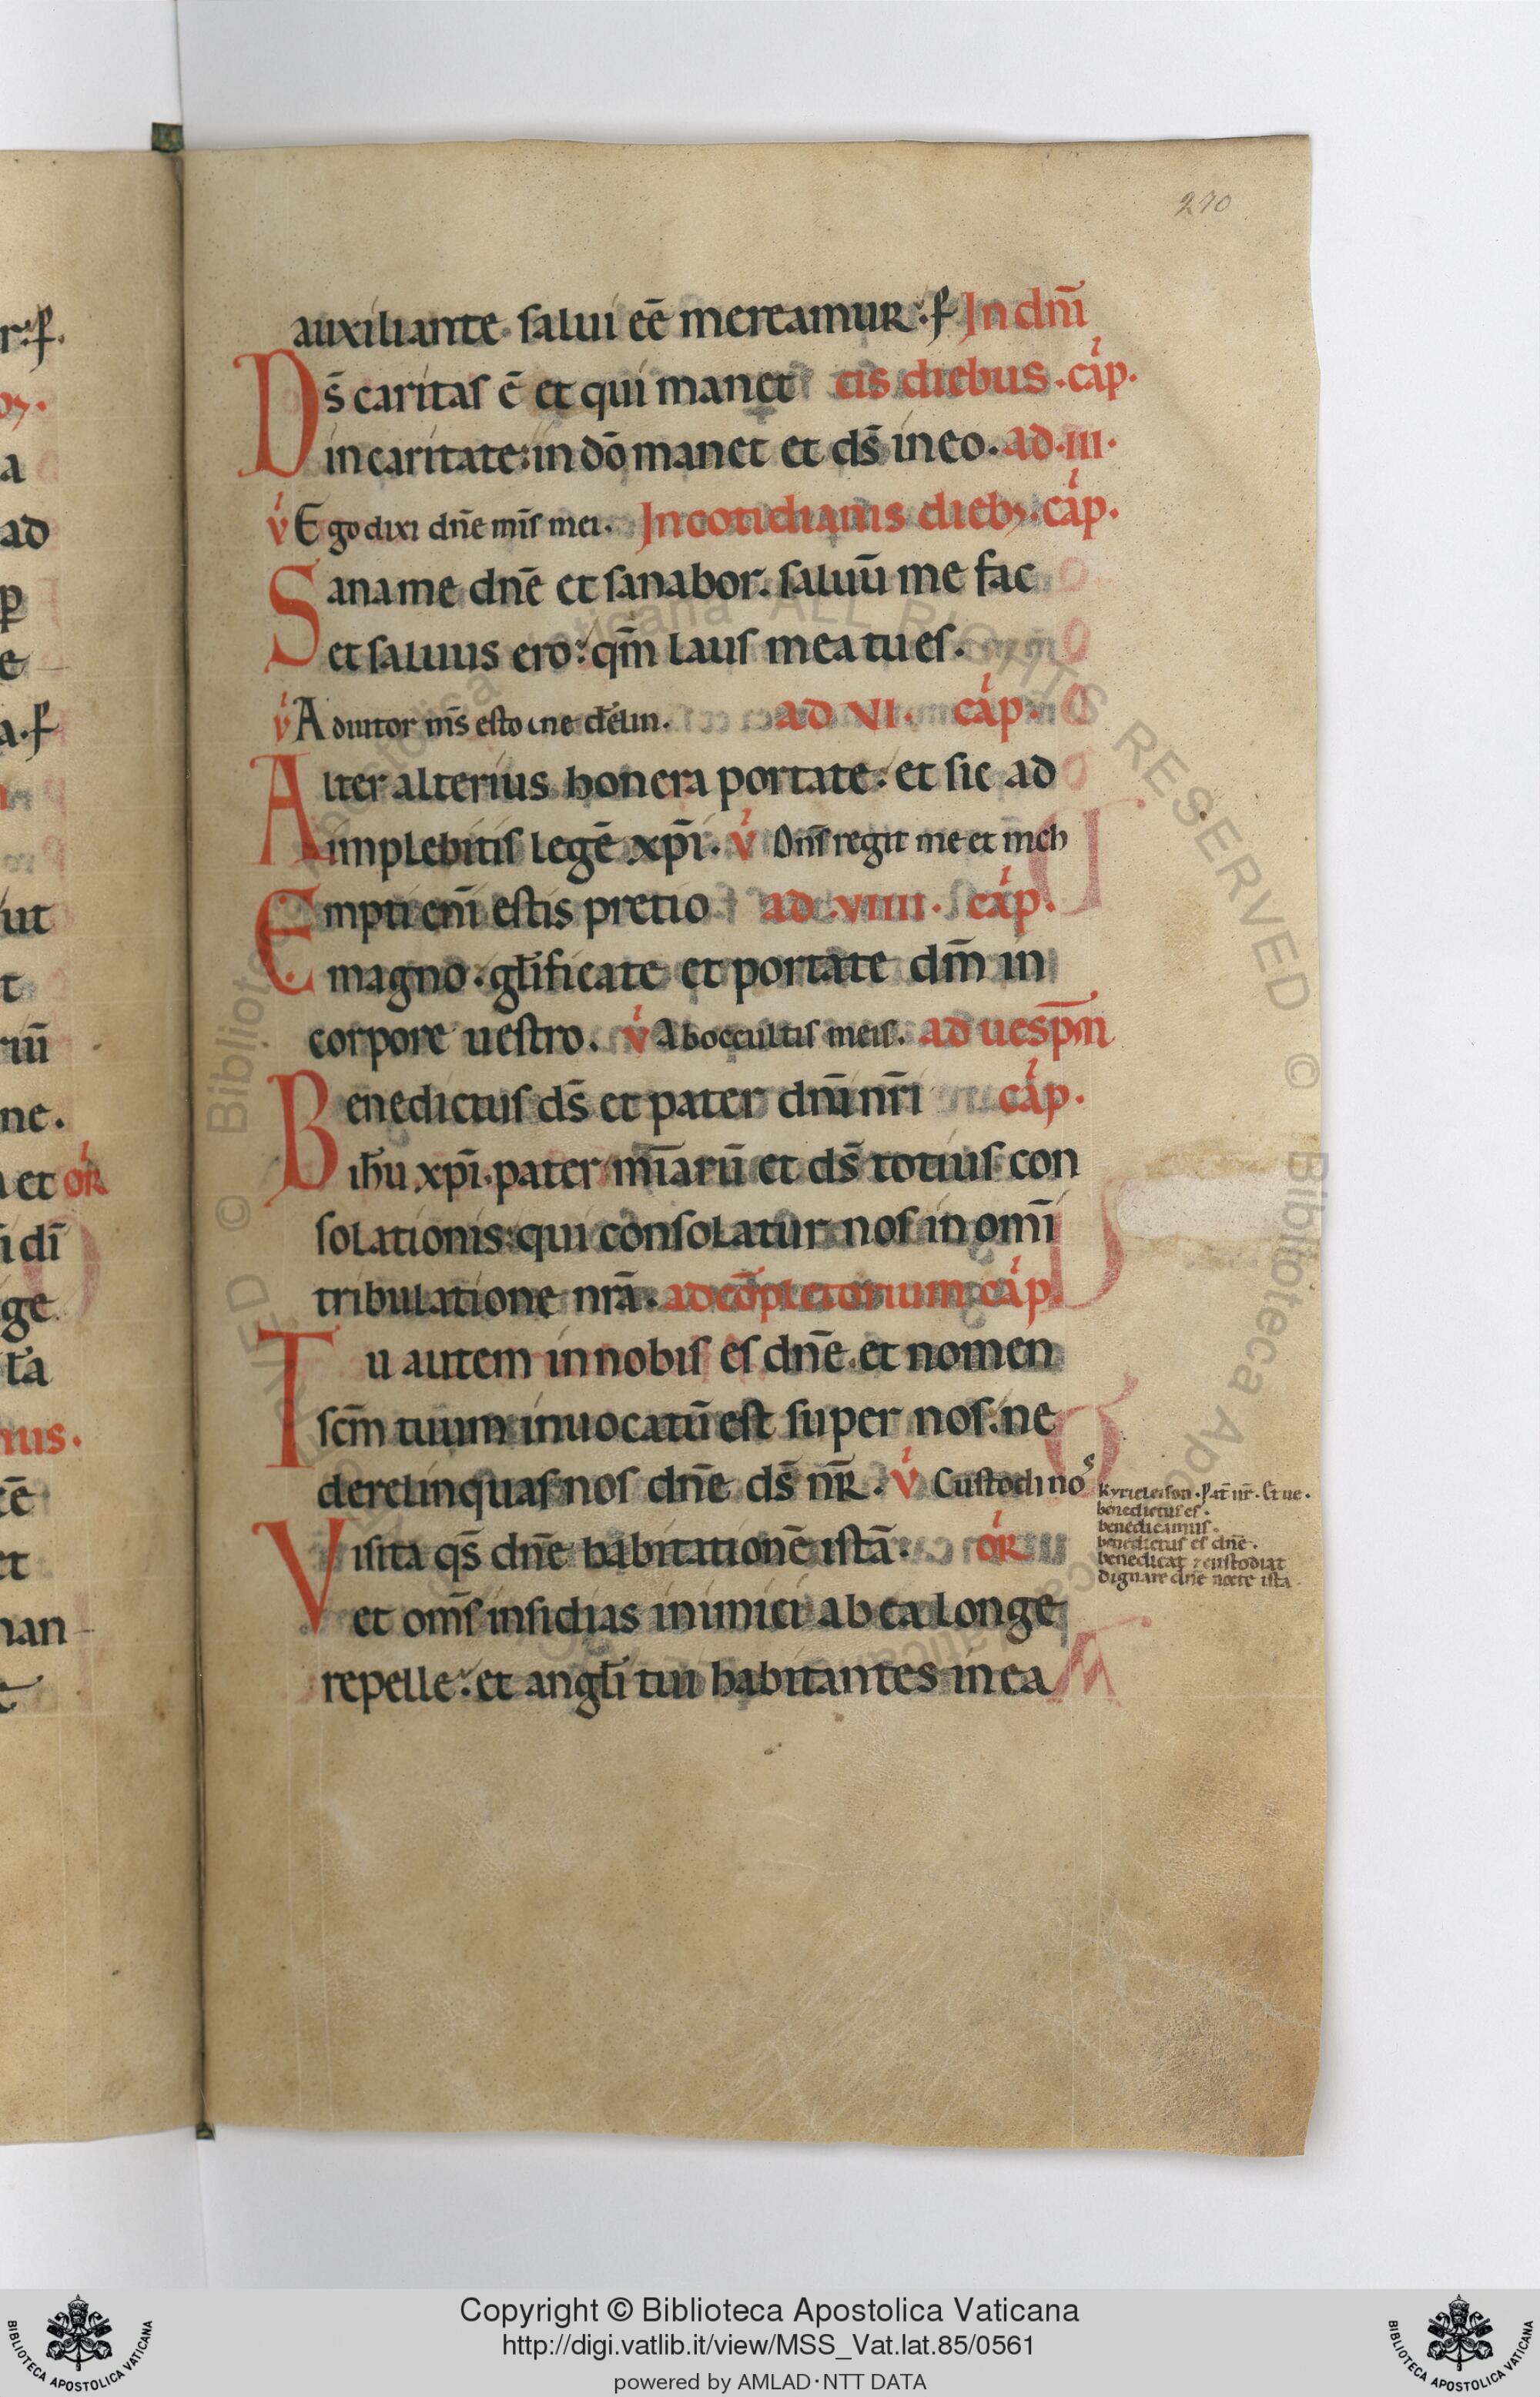 270
auxiliante saluí eē mereamur. ꝑ In dn̄i
Ds̄ caritas ē et quí manet cis diebus. cáp.
in caritate: in dō manet et ds̄ ín eo. ad. III.
v́ Ego dixi dn̄e mīs mei. In cotidianis dieb; cáp.
Sana me dn̄e et sanabor. saluū me fac
et saluus ero: qm̄ laus mea tu es.
v́ Adiutor ms̄ esto ne derelin. ad VI. cáp.
Alter alterius honera portate: et sic ad
implebitis legē xpī. v́ Dns̄ regit me et mch
Empti enī estis pretio ad. VIIII. cáp.
magno. glīficate et portate dm̄ in
corpore uestro. v́ Ab occultis meis. ad uesp̄m
Benedictus ds̄ et pater dn̄i nr̄i cáp.
ih̄u xpī. pater mīarū et ds̄ totíus con
solationis: quí consolatur nos ín omī
tribulatione nr̄a. ad cōpletorium cáp.
Tu autem ín nobis es dn̄e. et nomen
scm̄ tuum inuocatū est super nos. ne
derelinquas nos dn̄e ds̄ nr̄. v́ Custodi nos
Visita qs̄ dn̄e habitationē istā. oŕ
et oms̄ insidias inimici ab ea longe
repelle: et angl̄i tui habitantes in ea
Kyrieleison. Pat̄ nr̄. Et ne.
benedictus es.
benedicamus.
benedictus es dn̄e.
benedicat ⁊ custodiat
Dignare dn̄e nocte ista
r: ꝑ.
a
ad
ꝑ
e
a. ꝑ
íut
t
riū
ne.
et oŕ
i dī
ge
t̄a
nus.
et
nan
© Biblioteca Apostolica Vaticana ALL RIGHTS RESERVED © Biblioteca Apo
Copyright © Biblioteca Apostolica Vaticana
http://digi.vatlib.it/view/MSS_Vat.lat.85/0561
powered by AMLAD·NTT DATA
BIBLIOTECA APOSTOLICA VATICANA
BIBLIOTECA APOSTOLICA VATICANA